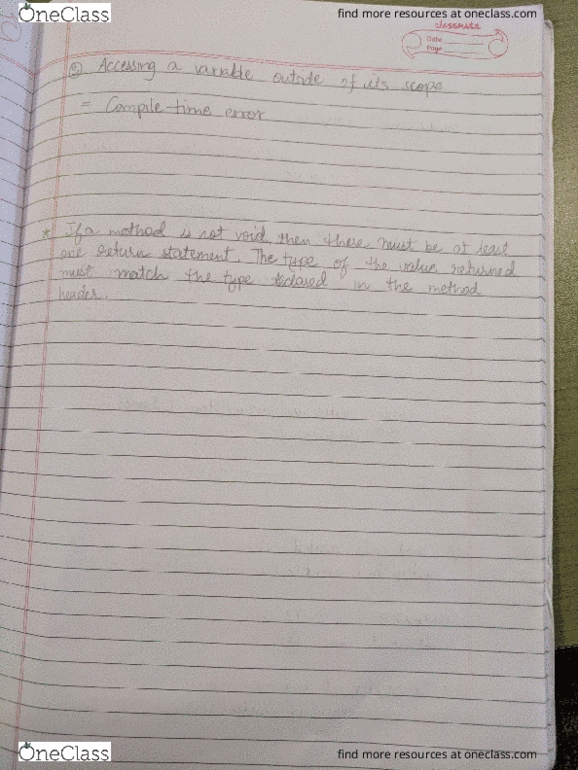 OneClass
find more resources at oneclass.com
classmate
Date
Page
② Accessing a variable outside of its scope
= Compile time error
* If a method is not void then there must be at least
one return statement. The type of the value returned
must match the type declared in the method
header.
OneClass
find more resources at oneclass.com